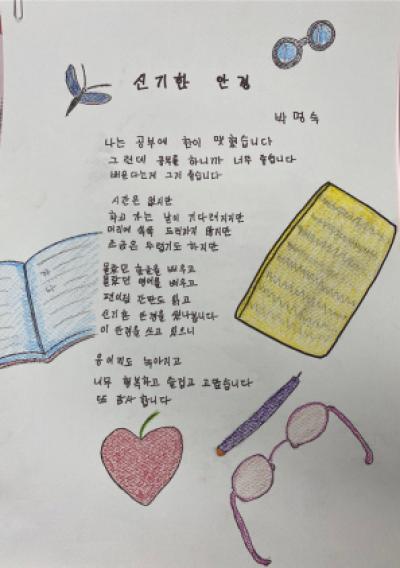 신기한 안경
박명숙
나는 공부에 한이 맺혔습니다
그런데 공부를 하니까 너무 즐겁니다
배운다는게 그저 좋습니다
시간은 없지만
학교 가는 날이 기다려지지만
머리에 쏙쏙 들어가지 않지만
조금은 두렵기도 하지만
몰랐던 한글을 배우고
몰랐던 영어를 배우고
편의점 간판도 읽고
신기한 안경을 썼나봅니다
이 안경을 쓰고 있으니
응어리도 녹아지고
너무 행복하고 즐겁고 고맙습니다
또 감사 합니다